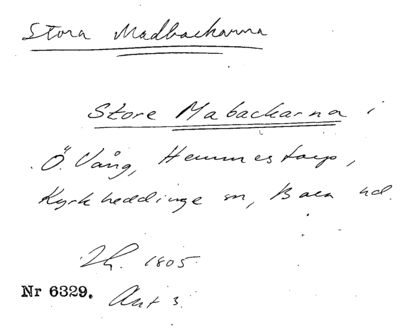 Stora Madbackarna
Store Mabackarna i
Ö. Vång, Hemmestorp,
Kyrkheddinge sn, Bara hd.
1805.
Nr 6329. Akt 3